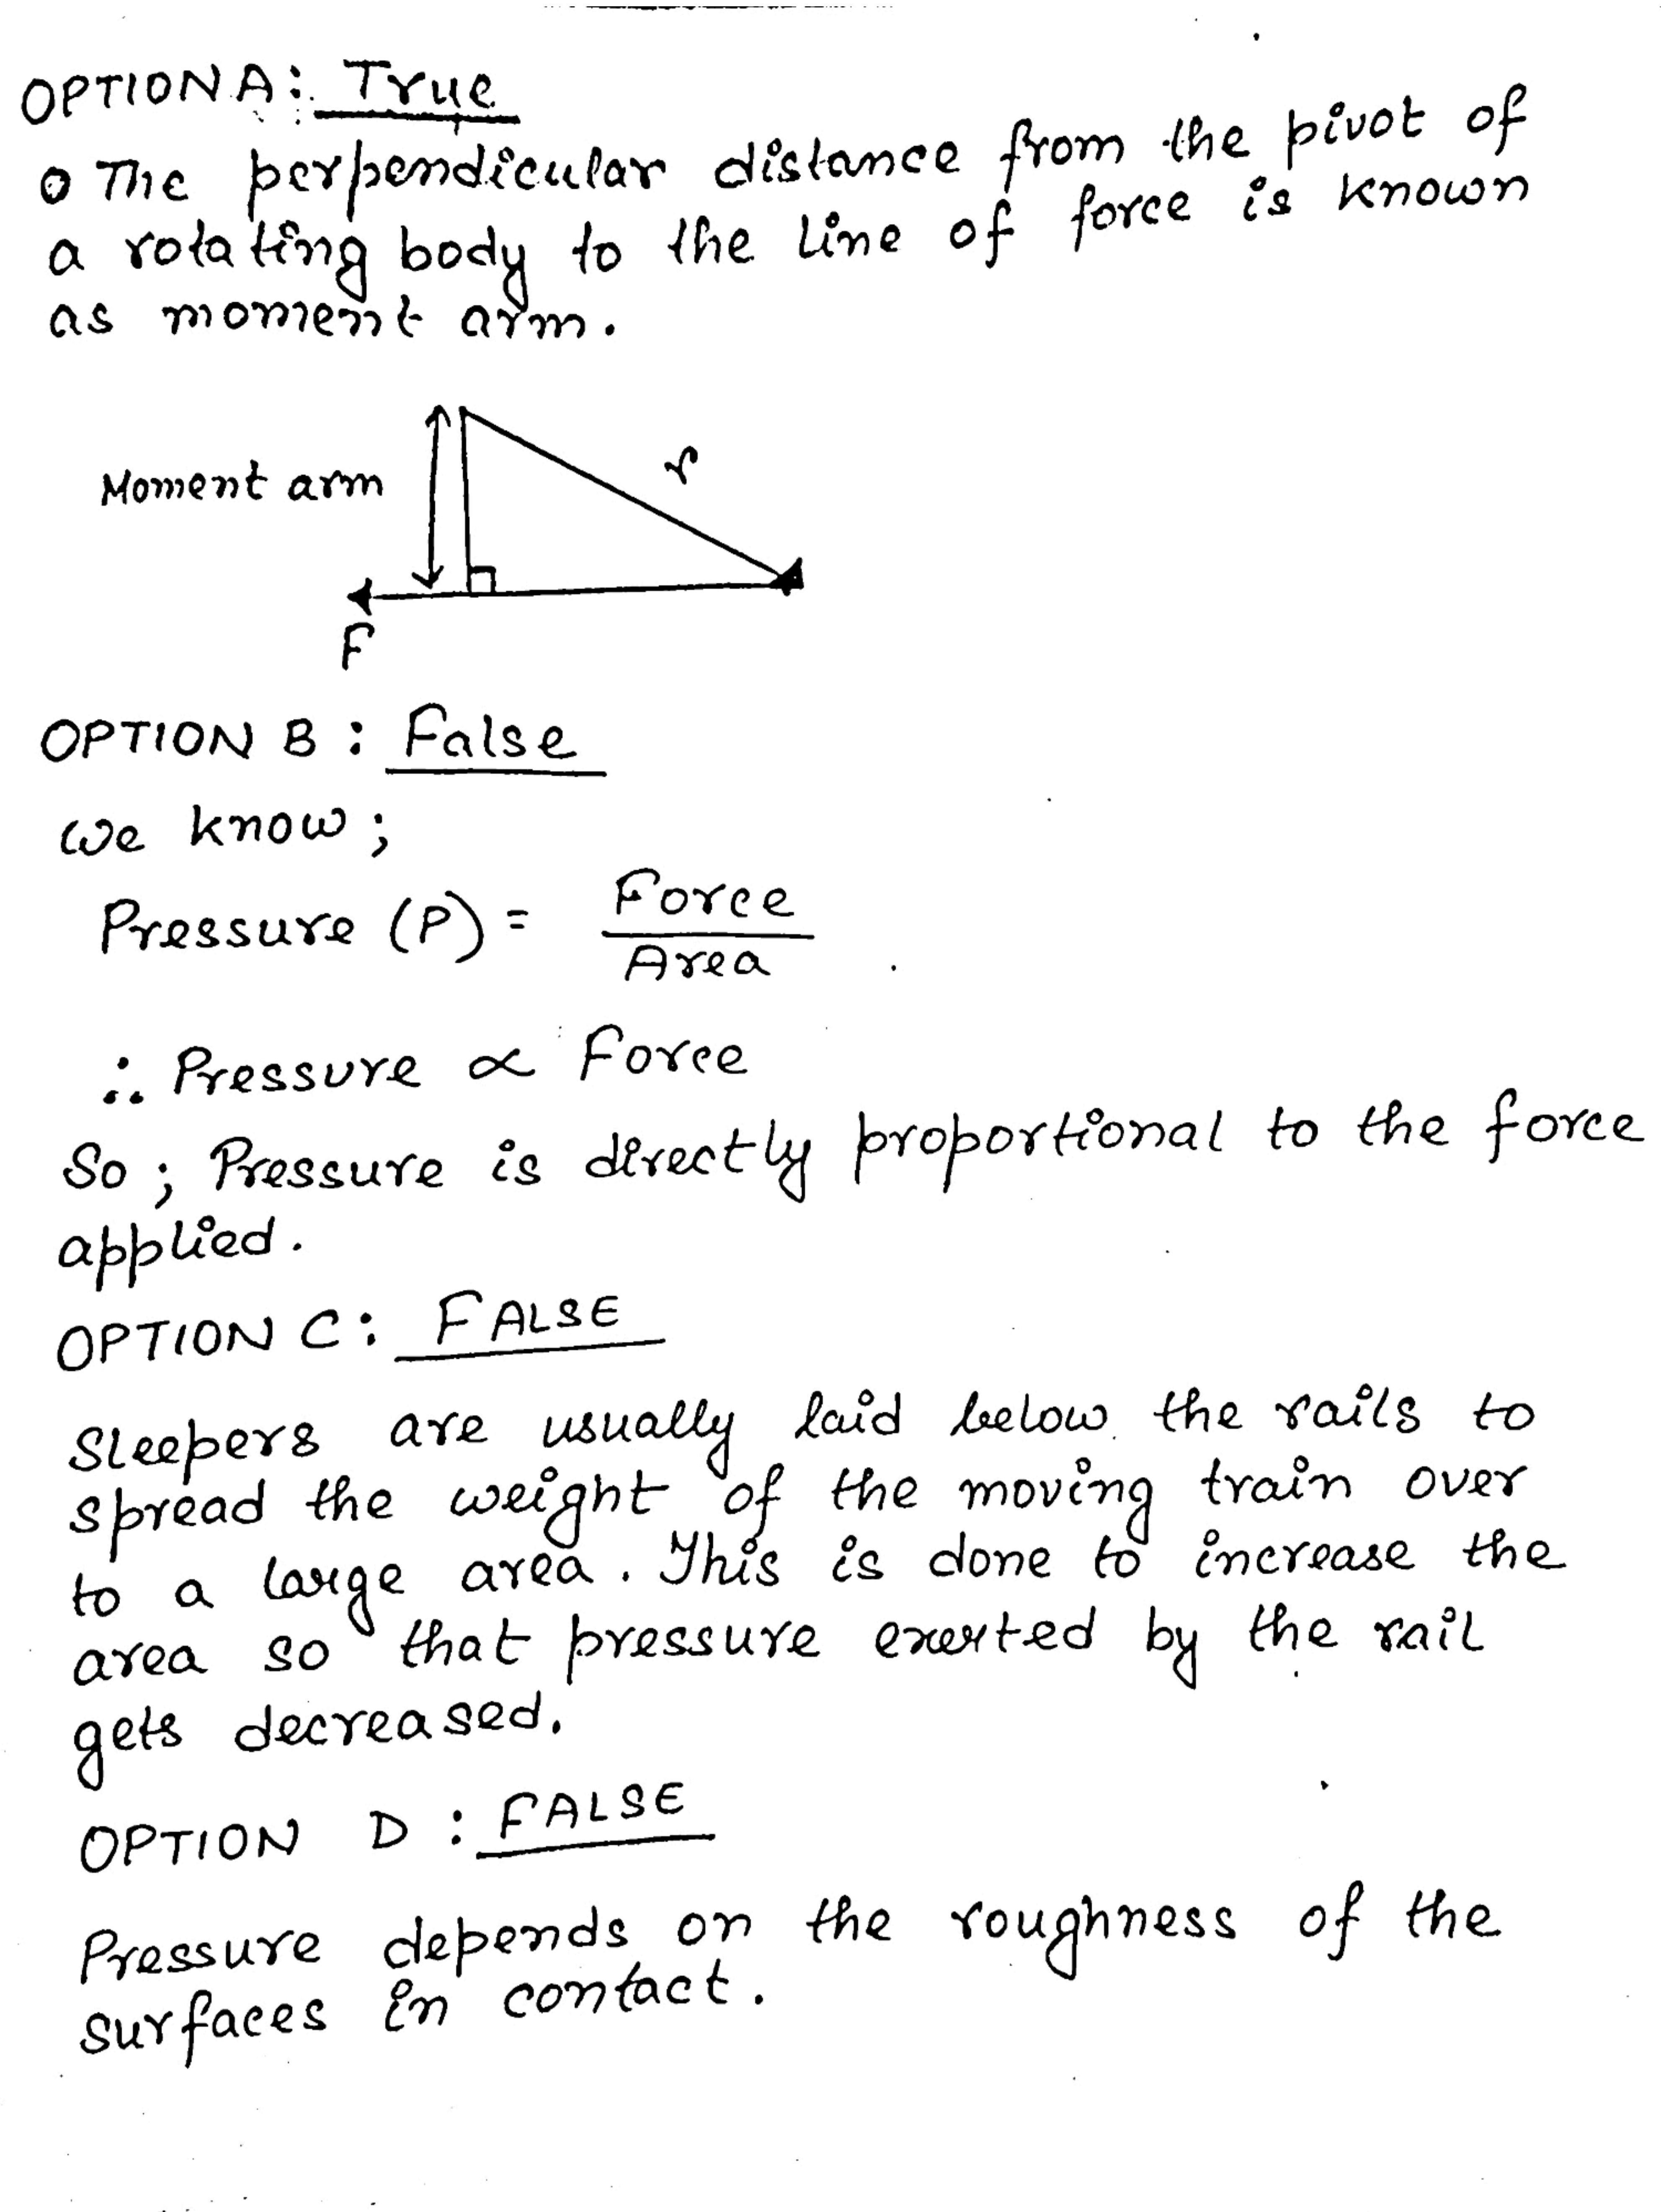 OPTION A: True
o The perpendicular distance from the pivot of
a rotating body to the line of force is known
as moment arm.
Moment arm
r
F
OPTION B : False
We know ;
Pressure (P) = Force
Area
∴ Pressure ∝ Force
So ; Pressure is directly proportional to the force
applied.
OPTION C: FALSE
Sleepers are usually laid below the rails to
spread the weight of the moving train over
to a large area. This is done to increase the
area so that pressure exerted by the rail
gets decreased.
OPTION D : FALSE
Pressure depends on the roughness of the
surfaces in contact.